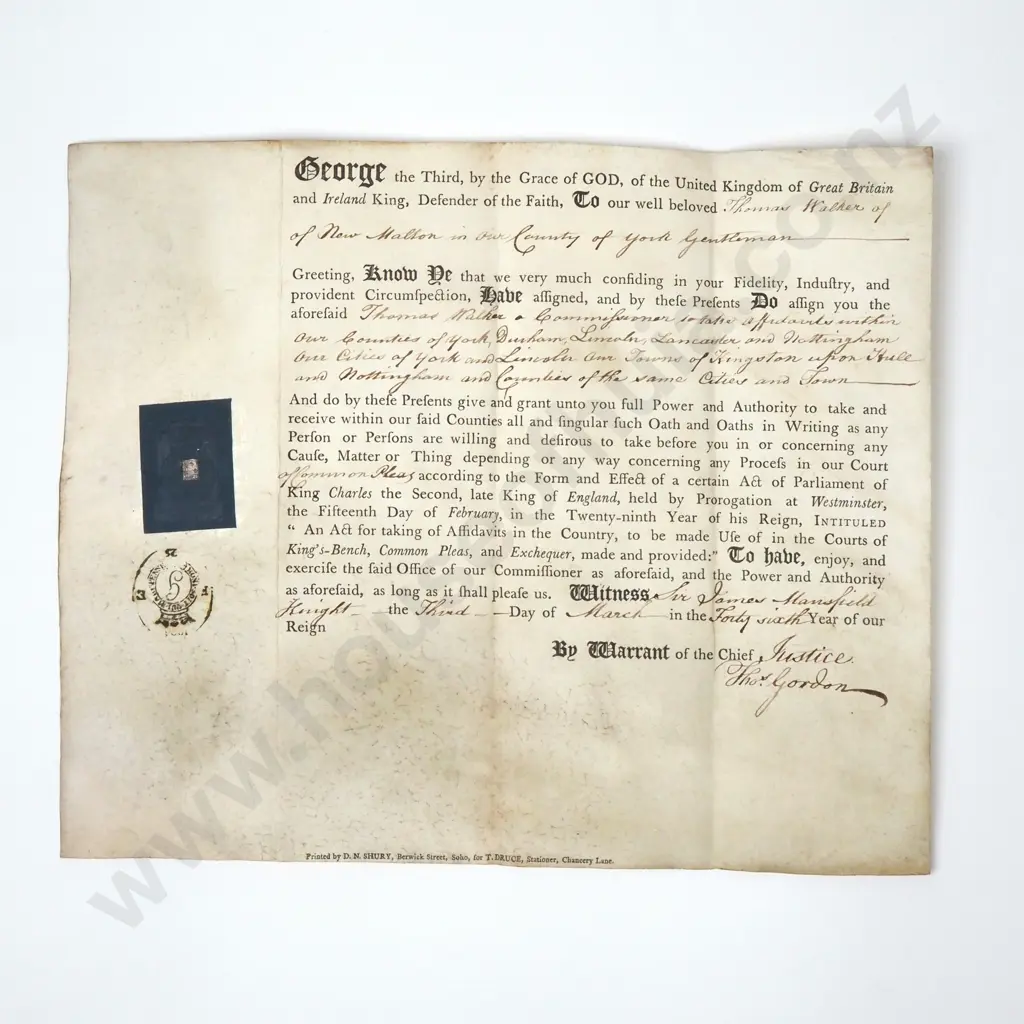 George the Third, by the Grace of GOD, of the United Kingdom of Great Britain
and Ireland King, Defender of the Faith, To our well beloved Thomas Walker of
of New Malton in our County of York Gentleman
Greeting, Know Ye that we very much confiding in your Fidelity, Induſtry, and
provident Circumſpection, Have aſſigned, and by theſe Preſents Do aſſign you the
aforeſaid Thomas Walker a Commiſsioner to take Affidavits within
Our Counties of York, Durham, Lincoln, Lancaster and Nottingham
Our Cities of York and Lincoln Our Towns of Kingston upon Hull
and Nottingham and Counties of the same Cities and Town
And do by theſe Preſents give and grant unto you full Power and Authority to take and
receive within our ſaid Counties all and ſingular ſuch Oath and Oaths in Writing as any
Perſon or Perſons are willing and deſirous to take before you in or concerning any
Cauſe, Matter or Thing depending or any way concerning any Proceſs in our Court
of Common Pleas according to the Form and Effect of a certain Act of Parliament of
King Charles the Second, late King of England, held by Prorogation at Weſtminſter,
the Fifteenth Day of February, in the Twenty-ninth Year of his Reign, INTITULED
“ An Act for taking of Affidavits in the Country, to be made Uſe of in the Courts of
King's-Bench, Common Pleas, and Exchequer, made and provided:” To have, enjoy, and
exerciſe the ſaid Office of our Commiſſioner as aforeſaid, and the Power and Authority
as aforeſaid, as long as it ſhall pleaſe us. Witneſs Sir James Mansfield
Knight the Third Day of March in the Forty sixth Year of our
Reign
By Warrant of the Chief Justice.
Thos. Gordon
Printed by D. N. SHURY, Berwick Street, Soho, for T. DRUCE, Stationer, Chancery Lane.